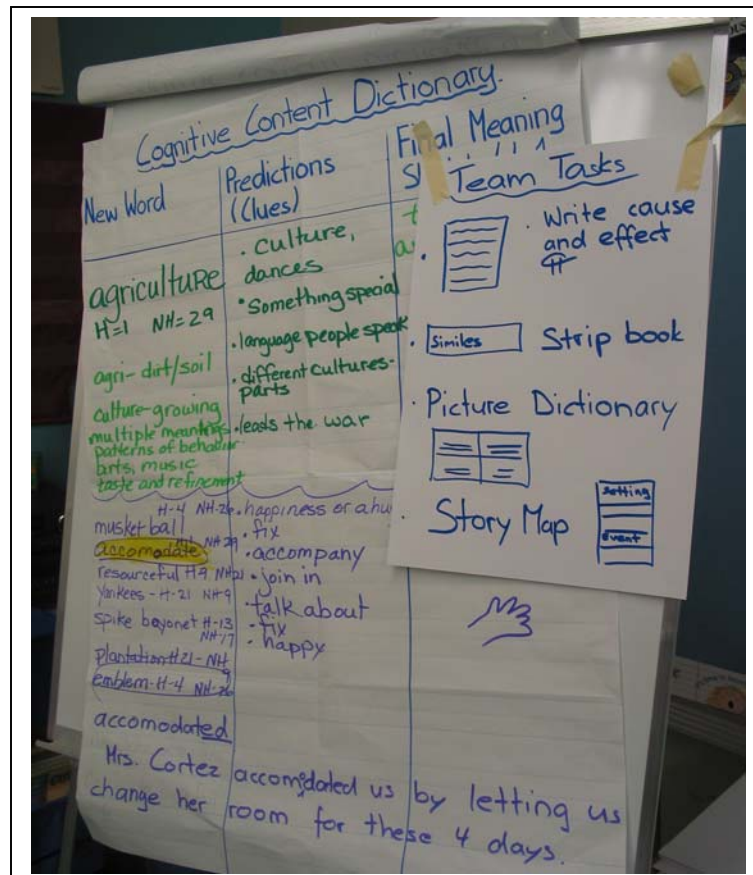 Cognitive Content Dictionary.
New Word
Predictions
(Clues)
Final Meaning
agriculture
H=1 NH=29
agri- dirt/soil
culture-growing
multiple meanings
patterns of behavior
arts, music
taste and refinement
• culture,
dances
• Something special
• language people speak
• different cultures-
parts
• leads the war
H-4 NH-26
musket ball
accomodate NH29
resourceful H9 NH21
Yankees - H-21 NH9
spike bayonet H-13
NH-17
plantation H21- NH
9
emblem-H-4 NH-26
accomodated
• happiness or a hu
• fix
• accompany
• join in
• talk about
• fix
• happy
Mrs. Cortez accomodated us by letting us
change her room for these 4 days.
Team Tasks
• Write cause
and effect
Similes
Strip book
• Picture Dictionary
• Story Map
setting
event